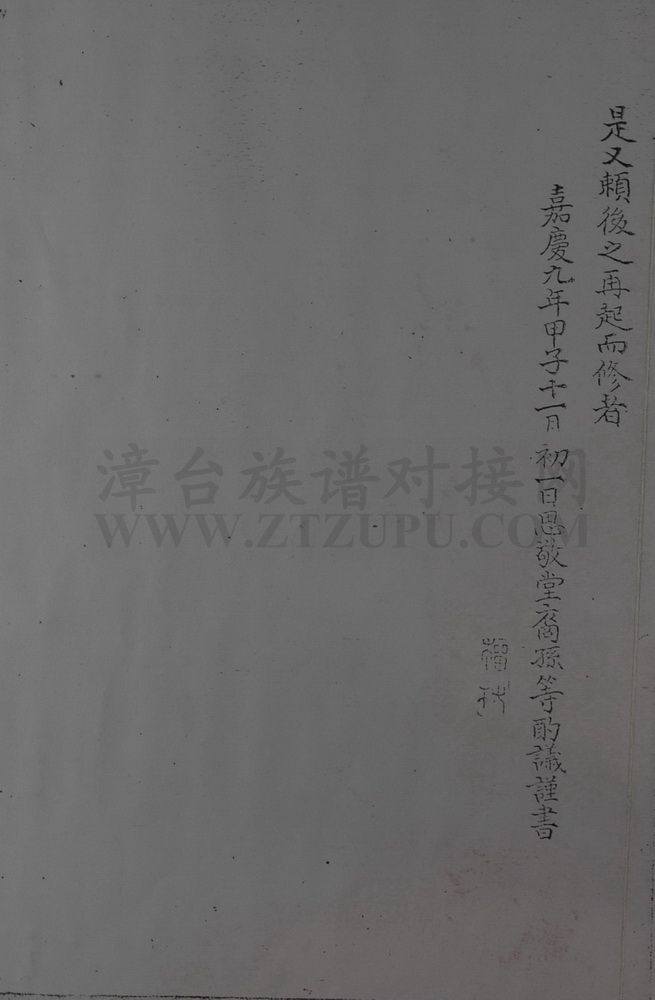 是又賴後之再起而修者
嘉慶九年甲子十一月初一日思敬堂裔孫等酌議謹書
漳台族谱对接网
WWW.ZTZUPU.COM